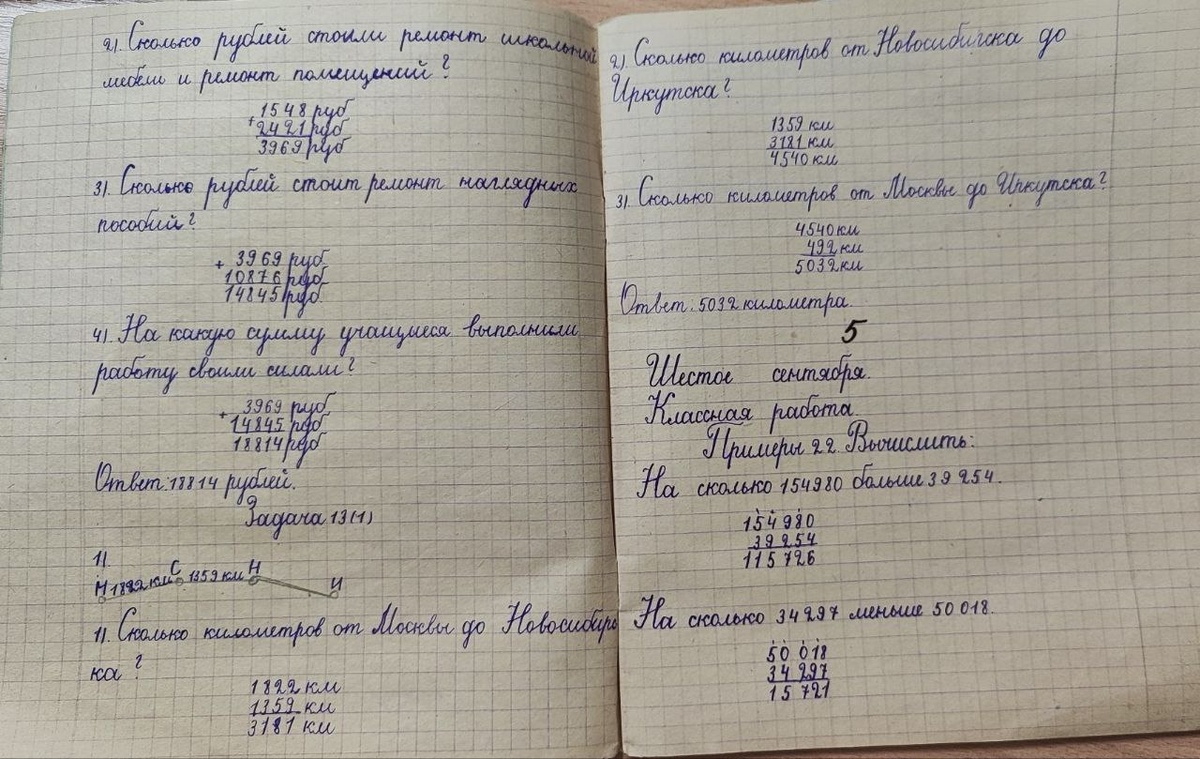 2). Сколько рублей стоили ремонт школьной
мебели и ремонт помещений?
1548 руб
+
2421 руб
3969 руб
3). Сколько рублей стоит ремонт наглядных
пособий?
3969 руб
+
10876 руб
14845 руб
4). На какую сумму учащиеся выполнили
работу своили силами?
3969 руб
+
14845 руб
18814 руб
Ответ. 18814 рублей.
Задача 13(1)
1).
М 1822 км С 1359 км Н И
1). Сколько километров от Москвы до Новосибирс
ка?
1822 км
1359 км
3181 км
2). Сколько километров от Новосибирска до
Иркутска?
1359 км
3181 км
4540 км
3). Сколько километров от Москвы до Иркутска?
4540 км
492 км
5032 км
Ответ. 5032 километра.
5
Шестое сентября.
Классная работа.
Примеры 22. Вычислить:
На сколько 154980 больше 39254.
154980
39254
115726
На сколько 34297 меньше 50018.
50018
34297
15721